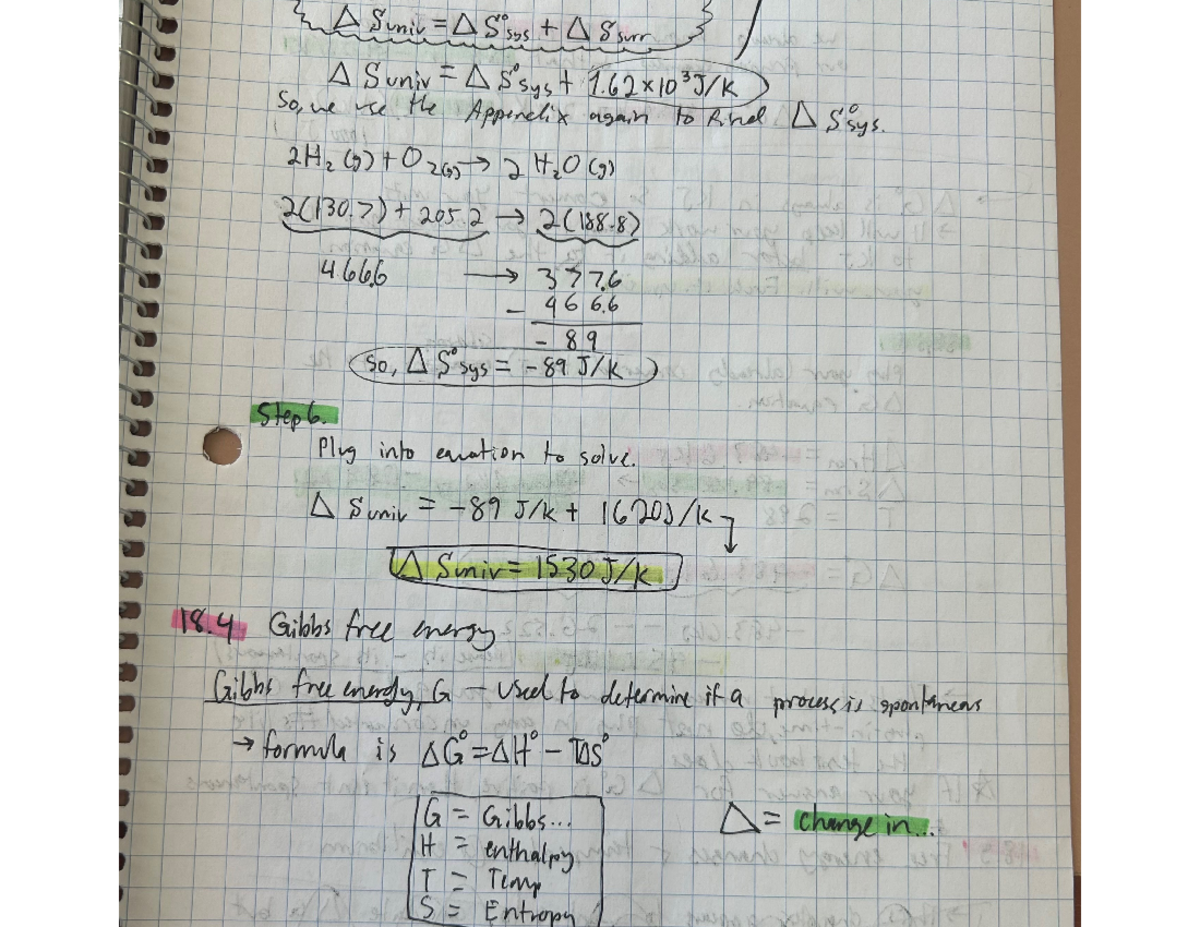 Δ Suniv = Δ S°sys + Δ Ssurr
Δ Suniv = Δ S°sys + 1.62 x 10³ J/K
So, we use the Appendix again to find Δ S°sys.
2H₂ (g) + O₂(g) → 2 H₂O (g)
2(130.7) + 205.2 → 2(188.8)
466.6 → 377.6
- 466.6
- 89
So, Δ S°sys = -89 J/K
Step 6.
Plug into equation to solve.
Δ Suniv = -89 J/K + 1620J/K
Δ Suniv = 1530 J/K
18.4 Gibbs free energy
Gibbs free energy, G - used to determine if a process is spontaneous
→ formula is ΔG° = ΔH° - TΔS°
G = Gibbs...
Δ = change in...
H = enthalpy
T = Temp
S = Entropy